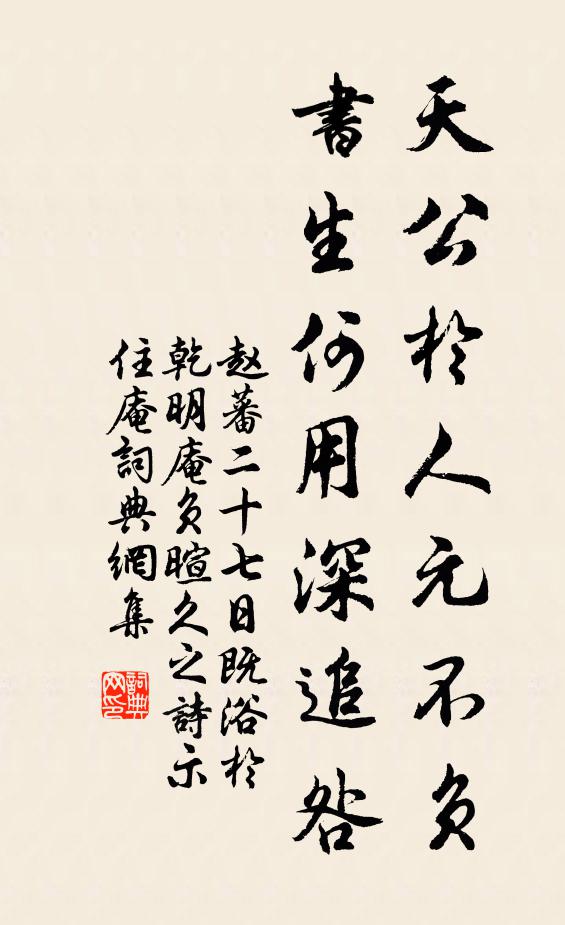 天公於人元不負
書生何用深追咎
赵蕃二十七日既浴於
乾明庵負暄久之詩示
住庵詞典網集
詞典网印